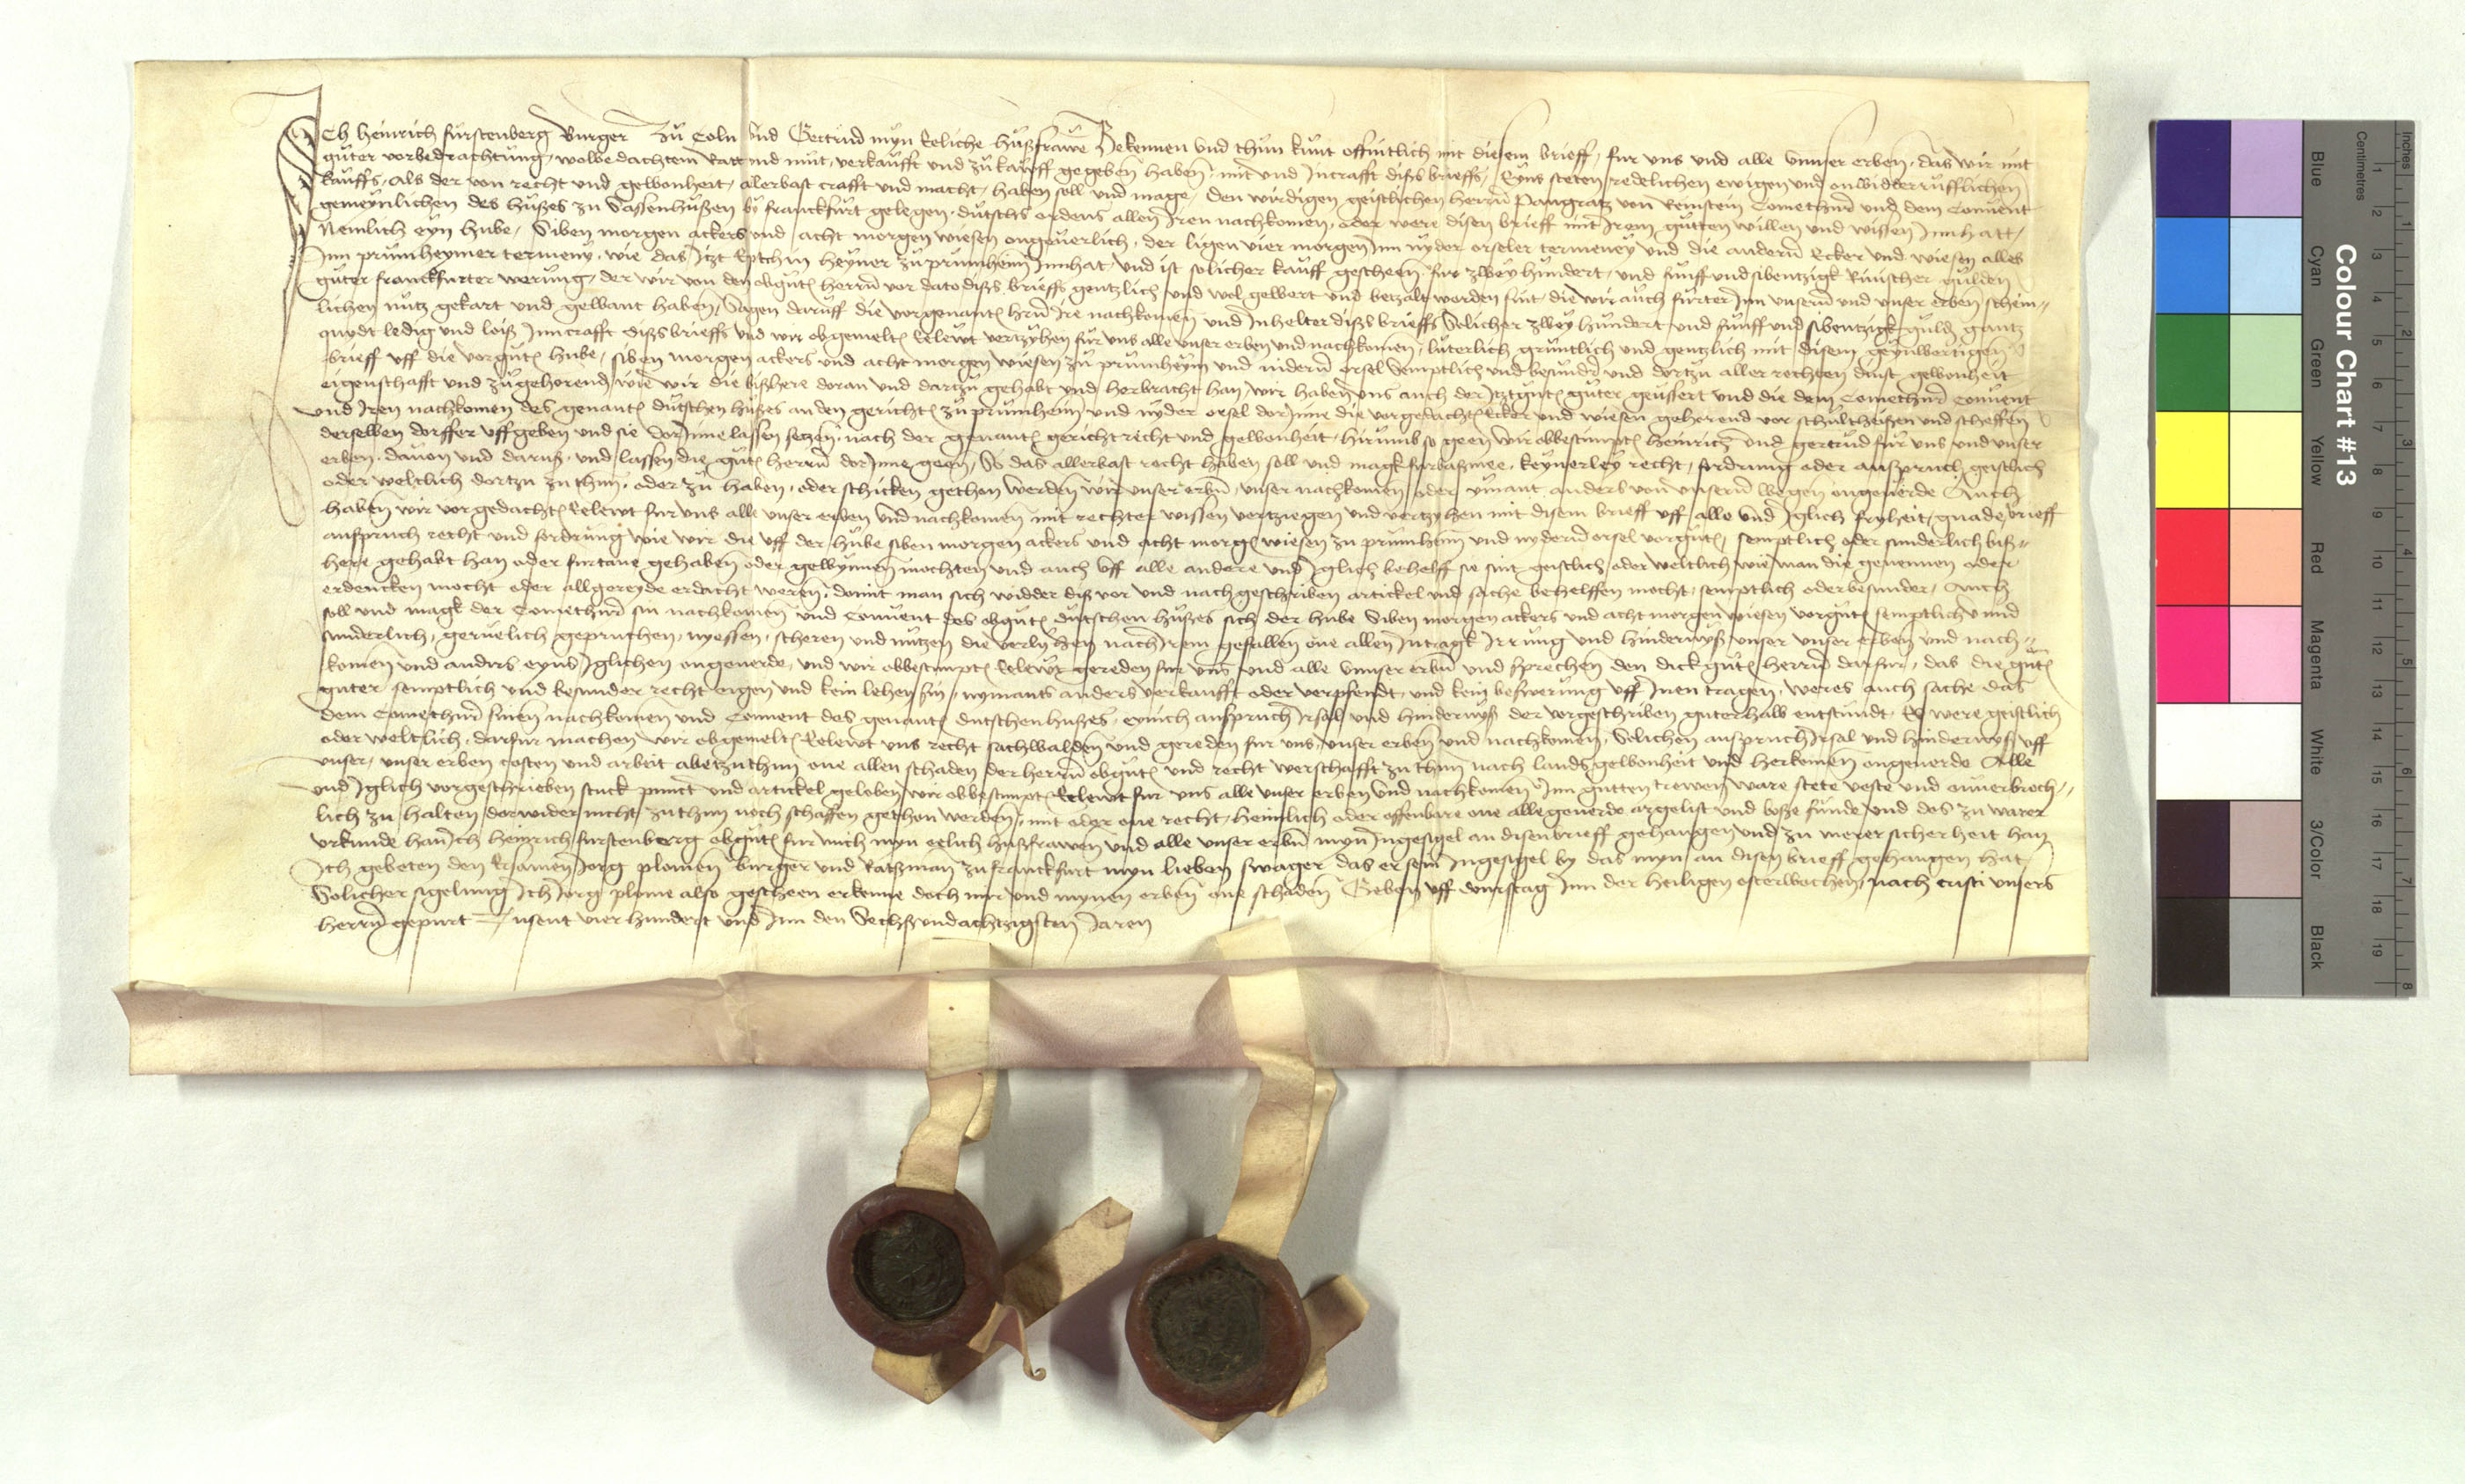 Ich Heinrich furstenberg Burger zu Coln und Gertrud myn Eeliche hußfrauwe Bekennen und thun kunt offintlich mit diesem brieff, fur uns und alle unnser erben, das wir mit
guter vorbedrachtung, wolbedachtem Ratt und mut, verkaufft und zu kauff gegeben haben, mit und Incrafft dißs brieffs, Eyns steten redelichen ewigen und onwidderrufflichen
kauffs, Als der von recht und gewonheit, alerbast crafft und macht, haben soll und mage, den wirdigen geistlichen herrn pangratz von Reinstein Comethur und dem Convent
gemeynlichen des hußes zu Sassenhußen by franckfurt gelegen, dutschs ordens allen Iren nachkomen, oder were disen brieff mit Irem gutten willen und wissen Innhatt,
Nemlich eyn hube, Siben morgen ackers und acht morgen wiesen ongeverlich, der ligen vier morgen Inn nyder orseler termeney und die andern Ecker und wiesen alles
Inn prumheymer termeny, wie das Itzt heyner zu prumheim Innhat, und ist solicher kauff gescheen fur zwey hundert, und funff und sibentzigk Rinischer gulden
guter franckfurter werung, der wir von den obgnten herrn vor dato dißs brieffs gentzlich und wol gewert und betzalt worden sint, die wir auch furter Inn unsern und unser erben schein-
lichen nutz gekart und gewant haben, Sagen daruff die vorgenanten hrn Ire nachkomen und Inhelter dißs brieffs Solicher zwey hundert und funff und sibentzigk guld gantz
quydt ledig und loiß Inncrafft dißs brieffs Und wir obgemelten Eelewt vertzyhen fur uns alle unser erben und nachkomen, luterlich gruntlich und gentzlich mit disem geynwertigen
brieff uff die vorgnten hube, siben morgen ackers und acht morgen wiesen zu prumheym und nidern orsel Semptlich und besundr und dortzu aller rechten dinst gewonheit
eigenschafft und zugehorend, wie wir die bißhere doran und dartzu gehabt und herbracht han, wir haben uns auch der Itztgnten guter geussert und die dem Comethur Convent
und Iren nachkomen des genanten dutschen hußes an den gerichten zu prumheim und nyder orsel dorInne die vorgedachten Ecker und wiesen gehorend vor schultheißen und scheffen
derselben dorffer uff geben und sie dorInne lassen setzen, nach der genanten gericht recht und gewonheit, hirumb so geen wir obbestimpten heinrich und gertrud fur uns und unser
erben, davon und daruß, und lassen die gnten herrn dorInne geen, So das allerbast recht haben soll und magk furbaßmee, keynerley recht, fordrung oder anspruch geistlich
oder weltlich dortzu zu thun, oder zu haben, oder schicken gethon werden wir unser erbn, unser nachkomen oder ymant anders von unsern wegen ongeverde Auch
haben wir vorgedachten Eelewt fur uns alle unser erben und nachkomen mit rechter wissen vertziegen und vertzyhen mit disem brieff uff alle und Iglich fryheit, gnade, brieff
anspruch recht und fordrung wie wir die uff der hube siben morgen ackers und acht morgen wiesen zu prumheim und nydern orsel vorgnten, semptlich oder sunderlich biß-
here gehabt han oder furtane gehaben oder gewynnen mochten und auch uff alle andere und Iglich behelff sie sint geistlich oder weltlich wie man die genennen oder
erdencken mocht oder allgereyde erdacht weren, domit man sich widder diß vor und nachgeschriben artickel und sache behelffen mocht, semptlich oder besunder, Auch
soll und magk der Comethur sin nachkomen und Convent des obgnten dutschen hußes sich der hube Siben morgen ackers und acht morgen wiesen vorgnten semptlich und
sunderlich, geruelich gepruchen, nyessen, scheren und nutzen die verlyhen nach Irem gefallen one allen Intragk Irrung und hinderniß unser unser erben und nach-
komen und anders eyns Iglichen ongeverde, und wir obbestimpten Eelewt gereden fur uns und alle unnser erbn und sprechen den dickgnten herrn darfur, das die gnten
guter semptlich und besunder recht eigen und kein lehen sin, nymants anders verkaufft oder verpfendt, und kein beswerung uff Inen tragen, weres auch sache das
dem Comethur sinen nachkomen und Convent des genanten dutschenhußes, eynich anspruch Irsal und hinderniß der vorgeschriben guterhalb entstundt, Es were geistlich
oder weltlich, darfur machen wir obgemelten Eelewt uns recht sachwalden und gereden fur uns, unser erben und nachkomen, Solichen anspruch Irsal und hinderniß uff
unser, unser erben costen und arbeit abetzuthun one allen schaden der herrn obgnten und recht werschafft zu thun nach lands gewonheit und herkomen ongeverde Alle
und Iglich vorgeschrieben stuck punct und artickel geloben wir obbestimpten Eelewt fur uns alle unser erben und nachkomen Inn gutten trewen ware stete veste und onverbroch-
lich zu halten dorwider nicht zuthun noch schaffen gethon werden, mit oder one recht, heimlich oder offenbare one alle geverde argelist und boße funde und des zu warer
urkunde han Ich heinrich furstenberg obgnten fur mich myn eelich hußfrawen und alle unser erbn myn Ingesigel an disen brieff gehangen und zu merer sicherheit han
Ich gebeten den Ersamen Jorg plomen burger und Ratßman zu franckfurt myn lieben swager das er sein Ingesigel by das myn an disen brieff gehangen hat,
Solicher sigelung Ich Jorg plume also gescheen erkenne doch mir und mynen erben one schaden Geben uff donrstag Inn der heiligen osterwochen, nach cristi unsers
herrn gepurt Tusent vier hundert und Inn den Sechßundachtzigsten Jaren
Colour Chart #13
Blue Cyan Green Yellow Red Magenta White 3/Color Black
Centimetres 1 2 3 4 5 6 7 8 9 10 11 12 13 14 15 16 17 18 19
Inches 1 2 3 4 5 6 7 8